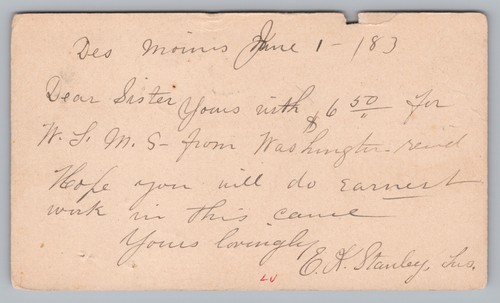 Des Moines June 1 - 183
Dear Sister
Yours with $6 50/" for
W. F. M. S - from Washington - recid
Hope you will do Earnest
work in this cause
Yours lovingly
E. K. Stanley,